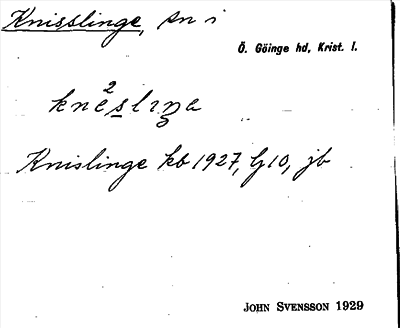 Knisslinge, sn i
Ö. Göinge hd, Krist. l.
Knislinge kb 1927, G10, jb
JOHN SVENSSON 1929